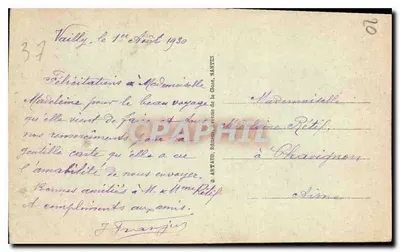 37
20
Vailly, le 1er Août 1930
Félicitations à Mademoiselle
Madeleine pour le beau voyage
qu'elle vient de faire et
nos remerciements pour la
gentille carte qu'elle a eue
l'amabilité de nous envoyer.
Bonnes amitiés à M. & Mme Rétif
& compliments aux amis.
G. ARTAUD, NANTES
Mademoiselle
Madeleine Rétif
à Chassignon
Aisne